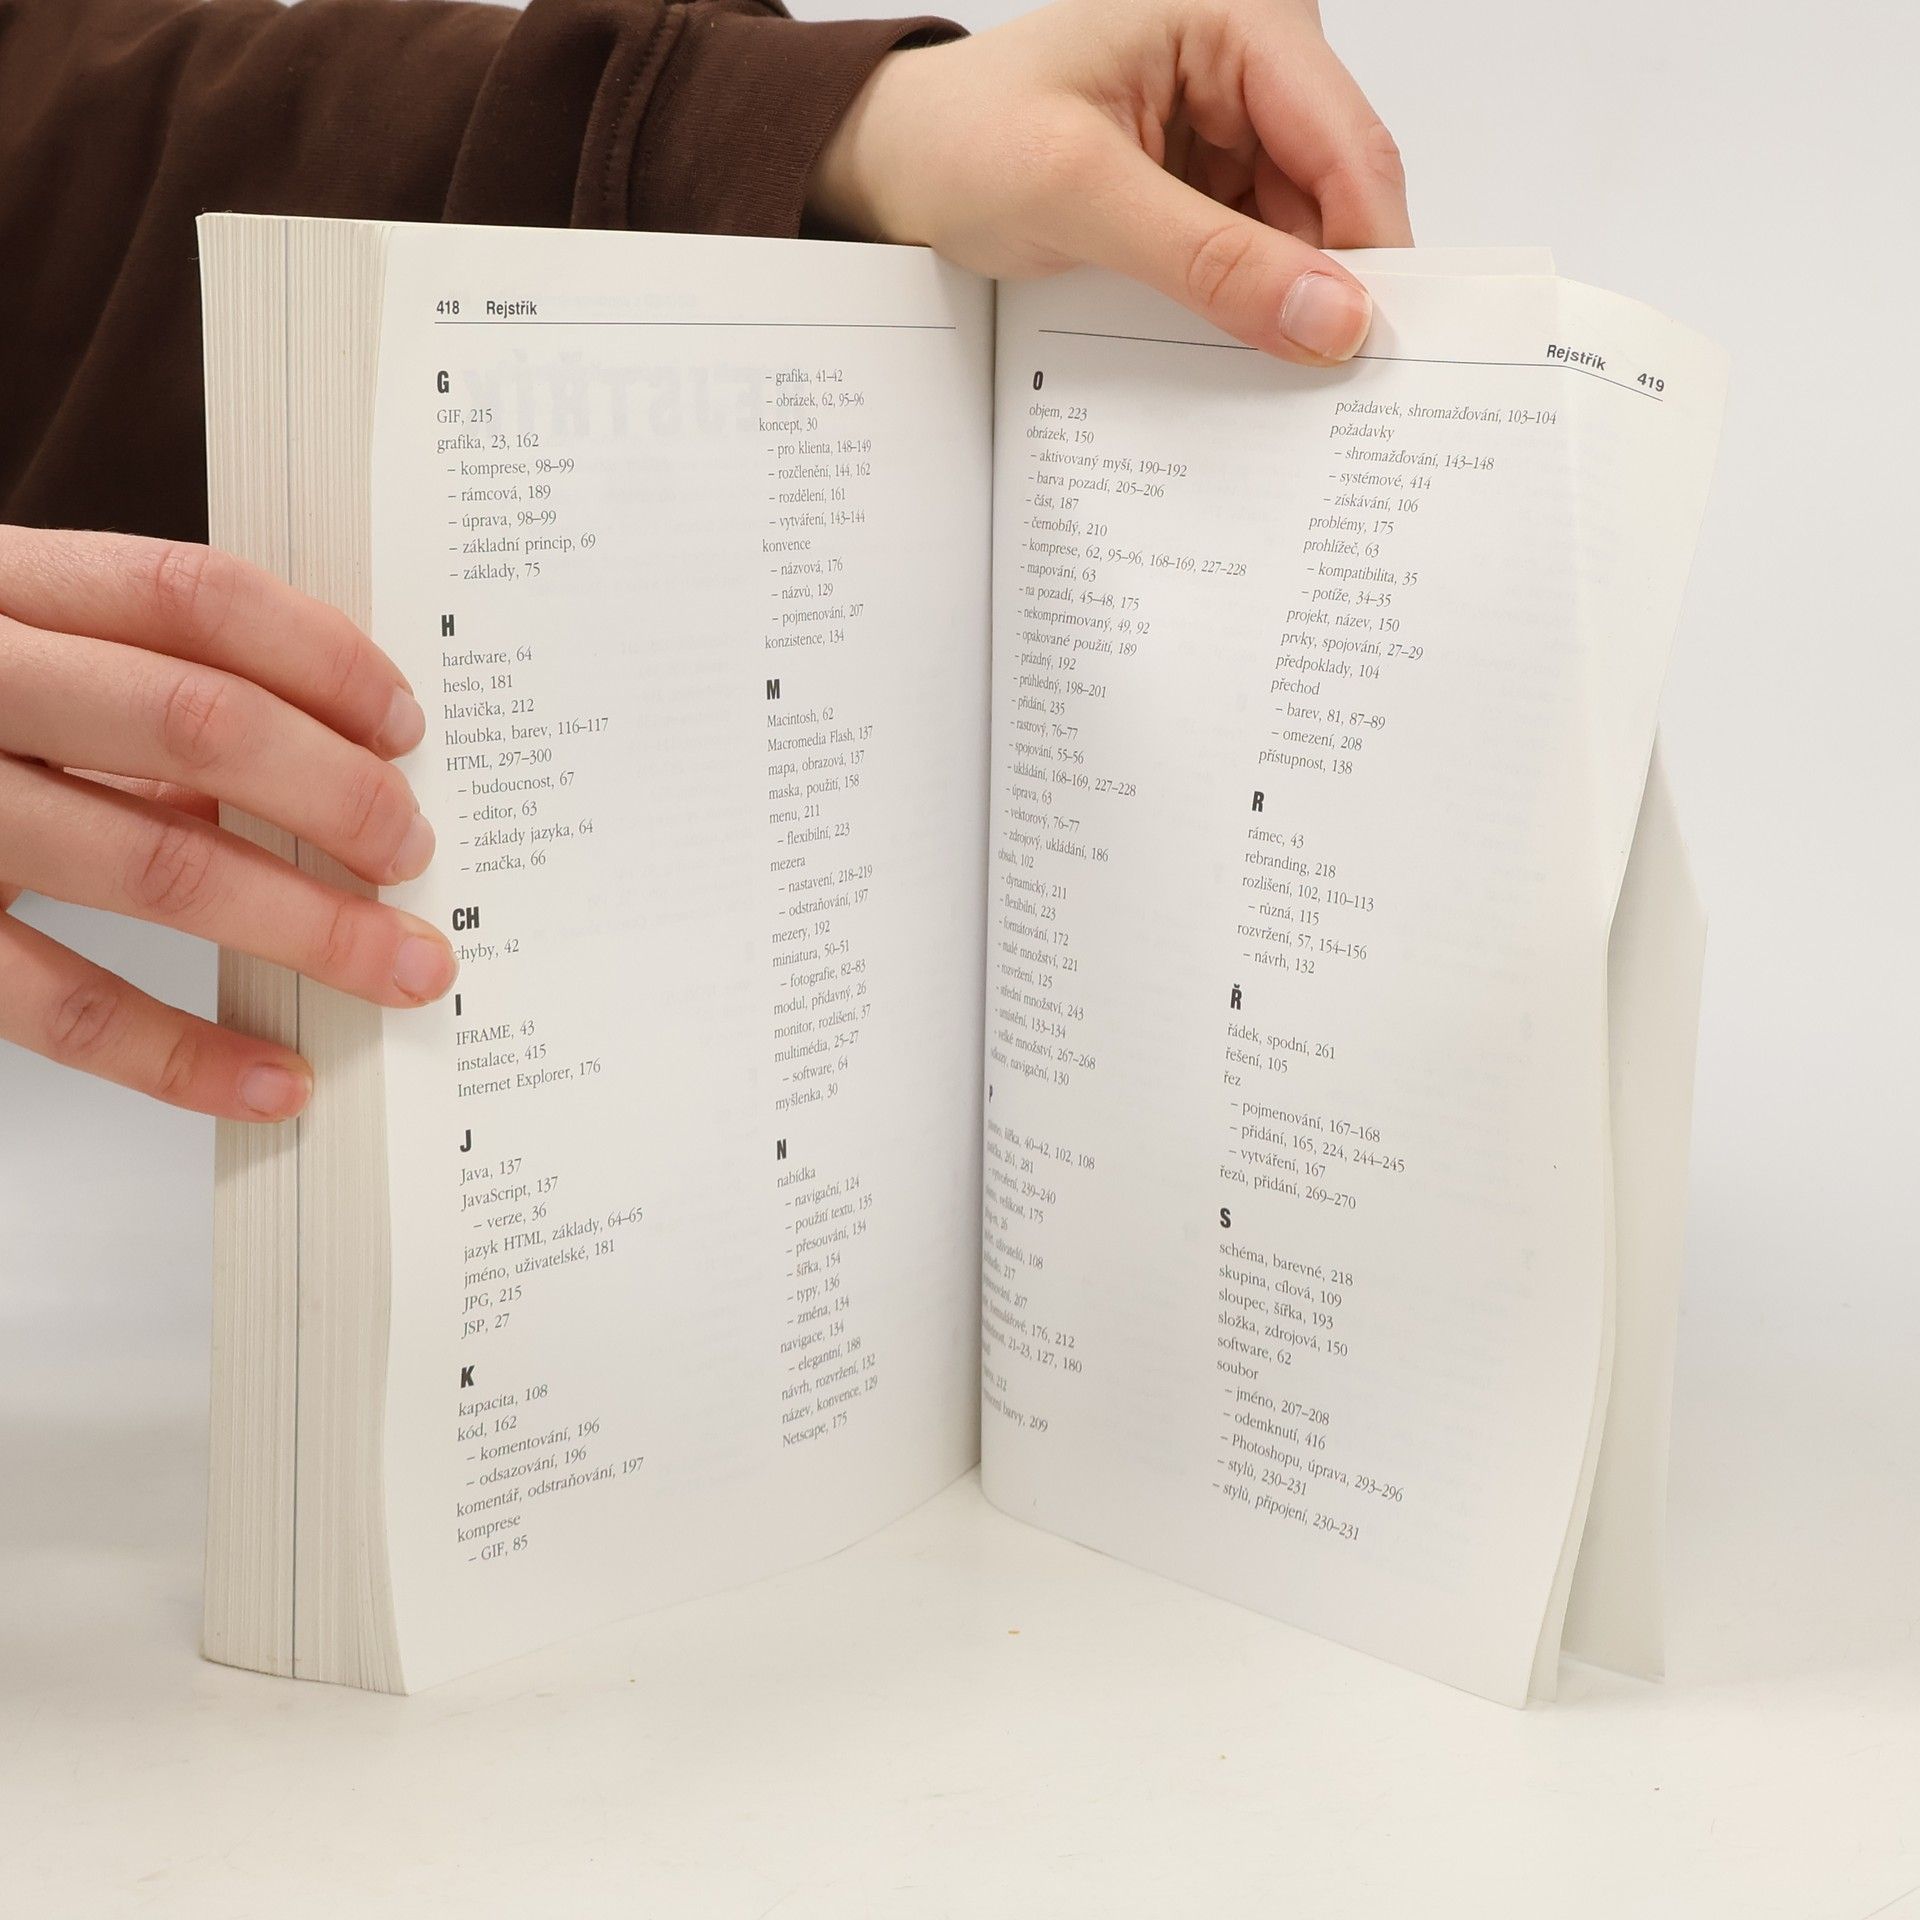 418 Rejstřík
G
GIF, 215
grafika, 23, 162
– komprese, 98–99
– rámcová, 189
– úprava, 98–99
– základní princip, 69
– základy, 75
H
hardware, 64
heslo, 181
hlavička, 212
hloubka, barev, 116–117
HTML, 297–300
– budoucnost, 67
– editor, 63
– základy jazyka, 64
– značka, 66
CH
chyby, 42
I
IFRAME, 43
instalace, 415
Internet Explorer, 176
J
Java, 137
JavaScript, 137
– verze, 36
jazyk HTML, základy, 64–65
jméno, uživatelské, 181
JPG, 215
JSP, 27
K
kapacita, 108
kód, 162
– komentování, 196
– odsazování, 196
komentář, odstraňování, 197
komprese
– GIF, 85
– grafika, 41–42
– obrázek, 62, 95–96
koncept, 30
– pro klienta, 148–149
– rozčlenění, 144, 162
– rozdělení, 161
– vytváření, 143–144
konvence
– názvová, 176
– názvů, 129
– pojmenování, 207
konzistence, 134
M
Macintosh, 62
Macromedia Flash, 137
mapa, obrazová, 137
maska, použití, 158
menu, 211
– flexibilní, 223
mezera
– nastavení, 218–219
– odstraňování, 197
mezery, 192
miniatura, 50–51
– fotografie, 82–83
modul, přídavný, 26
monitor, rozlišení, 37
multimédia, 25–27
– software, 64
myšlenka, 30
N
nabídka
– navigační, 124
– použití textu, 135
– přesouvání, 134
– šířka, 154
– typy, 136
– změna, 134
navigace, 134
– elegantní, 188
návrh, rozvržení, 132
název, konvence, 129
Netscape, 175
Rejstřík 419
O
objem, 223
obrázek, 150
– aktivovaný myší, 190–192
– barva pozadí, 205–206
– část, 187
– černobílý, 210
– komprese, 62, 95–96, 168–169, 227–228
– mapování, 63
– na pozadí, 45–48, 175
– nekomprimovaný, 49, 92
– opakované použití, 189
– prázdný, 192
– průhledný, 198–201
– přidání, 235
– rastrový, 76–77
– spojování, 55–56
– ukládání, 168–169, 227–228
– úprava, 63
– vektorový, 76–77
– zdrojový, ukládání, 186
obsah, 102
– dynamický, 211
– flexibilní, 223
– formátování, 172
– malé množství, 221
– rozvržení, 125
– střední množství, 243
– umístění, 133–134
– velké množství, 267–268
odkazy, navigační, 130
P
šířka, 40–42, 102, 108
261, 281
– vytvoření, 239–240
velikost, 175
26
uživatelů, 108
217
207
formulářové, 176, 212
21–23, 127, 180
212
barvy, 209
požadavek, shromažďování, 103–104
požadavky
– shromažďování, 143–148
– systémové, 414
– získávání, 106
problémy, 175
prohlížeč, 63
– kompatibilita, 35
– potíže, 34–35
projekt, název, 150
prvky, spojování, 27–29
předpoklady, 104
přechod
– barev, 81, 87–89
– omezení, 208
přístupnost, 138
R
rámec, 43
rebranding, 218
rozlišení, 102, 110–113
– různá, 115
rozvržení, 57, 154–156
– návrh, 132
Ř
řádek, spodní, 261
řešení, 105
řez
– pojmenování, 167–168
– přidání, 165, 224, 244–245
– vytváření, 167
řezů, přidání, 269–270
S
schéma, barevné, 218
skupina, cílová, 109
sloupec, šířka, 193
složka, zdrojová, 150
software, 62
soubor
– jméno, 207–208
– odemknutí, 416
– Photoshopu, úprava, 293–296
– stylů, 230–231
– stylů, připojení, 230–231